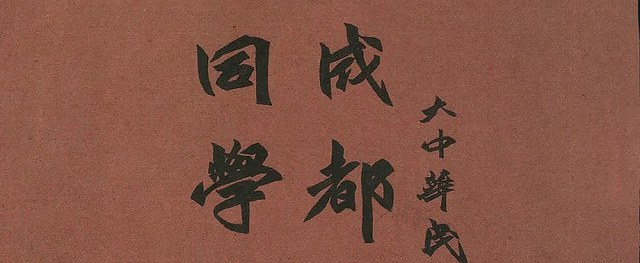 大中華民
成都
同學